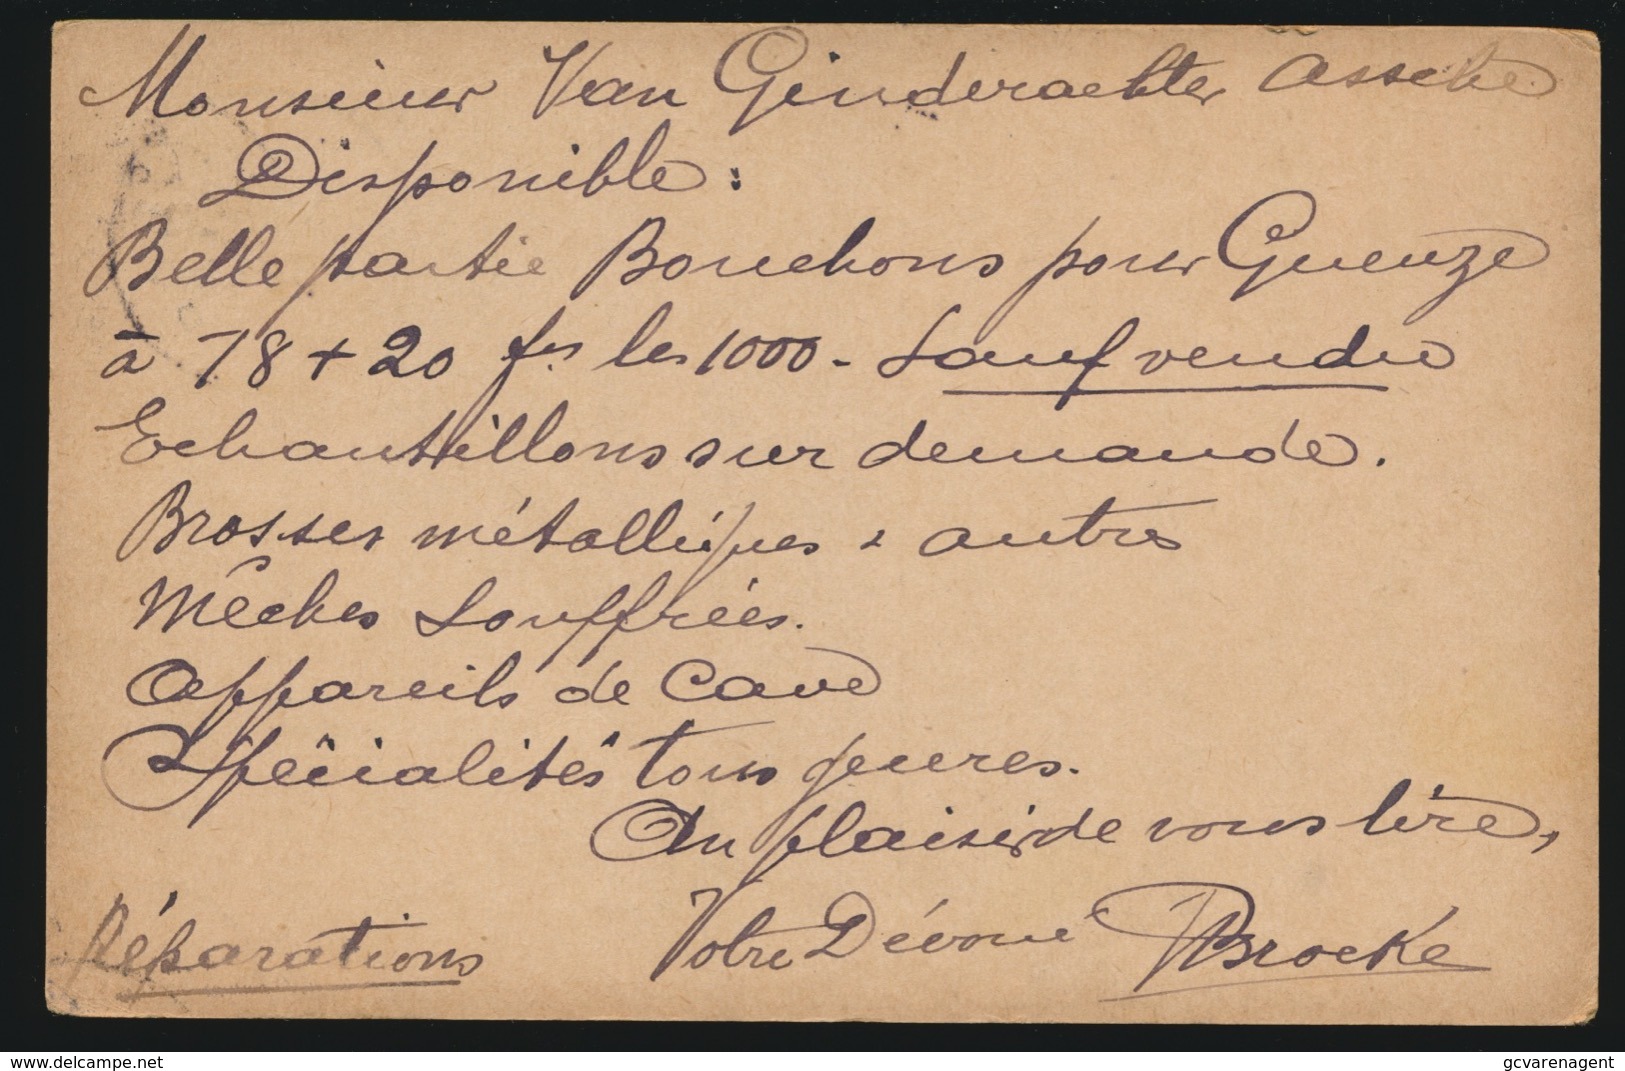 Monsieur Van Ginderachter Assche
Disponible :
Belle partie Bouchons pour Gueuze
à 18 + 20 frs les 1000 - Sauf vendu
Echantillons sur demande.
Brosses métalliques & autres
Mêches Souffrées.
Appareils de Cave
Spécialités tous genres.
Au plaisir de vous lire,
Réparations Votre Dévoué Brocke
www.delcampe.net gcvarenagent